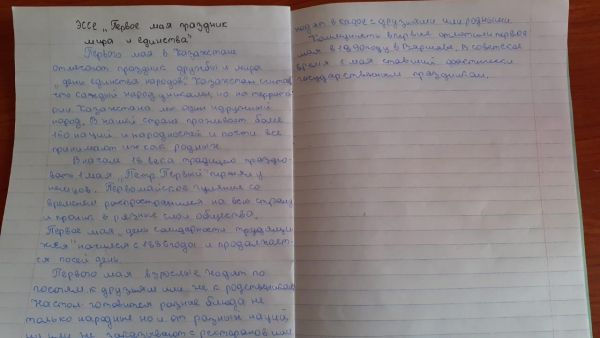 Эссе „Первое мая праздник
мира и единства"
Первого мая в Казахстане
отмечают праздник дружбы и мира
„день единства народов". Казахстан считает
что каждый народ уникален, но на террито-
рии Казахстана мы один дружный
народ. В нашей стране проживает более
130 наций и народностей и почти все
принимают их как родных.
В начале 18 века традицию праздно-
вать 1 мая „Петр Первый" перенял у
немцов. Первомайское гуляние со
временем распространился на всю страну
и проник в разные слои общества.
Первое мая „день солидарности трудящих
" начился с 1886 года и продолжает-
ся посей день.
Первого мая взрослые ходят по
гостям к друзьям или же к родственикам
На стол готовится разные блюда не
только народные но и от разных наций,
ну или же заказывают с ресторанов или
ходят в кафе с друзьями или родными.
впервые отметили первое
мая в 1890 году в Варшаве. В советское
время 1 мая ставший фактически
государственным праздником.